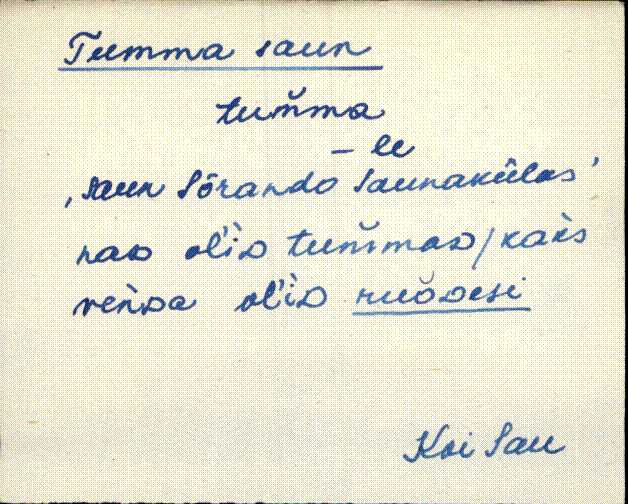 Tumma saun
tum̆ma
– le
‚saun Sõrando Saunakülas’
nad ol'iD tum̆maD / kaks
venDa ol'iD ruŏDesi
Koi Sau